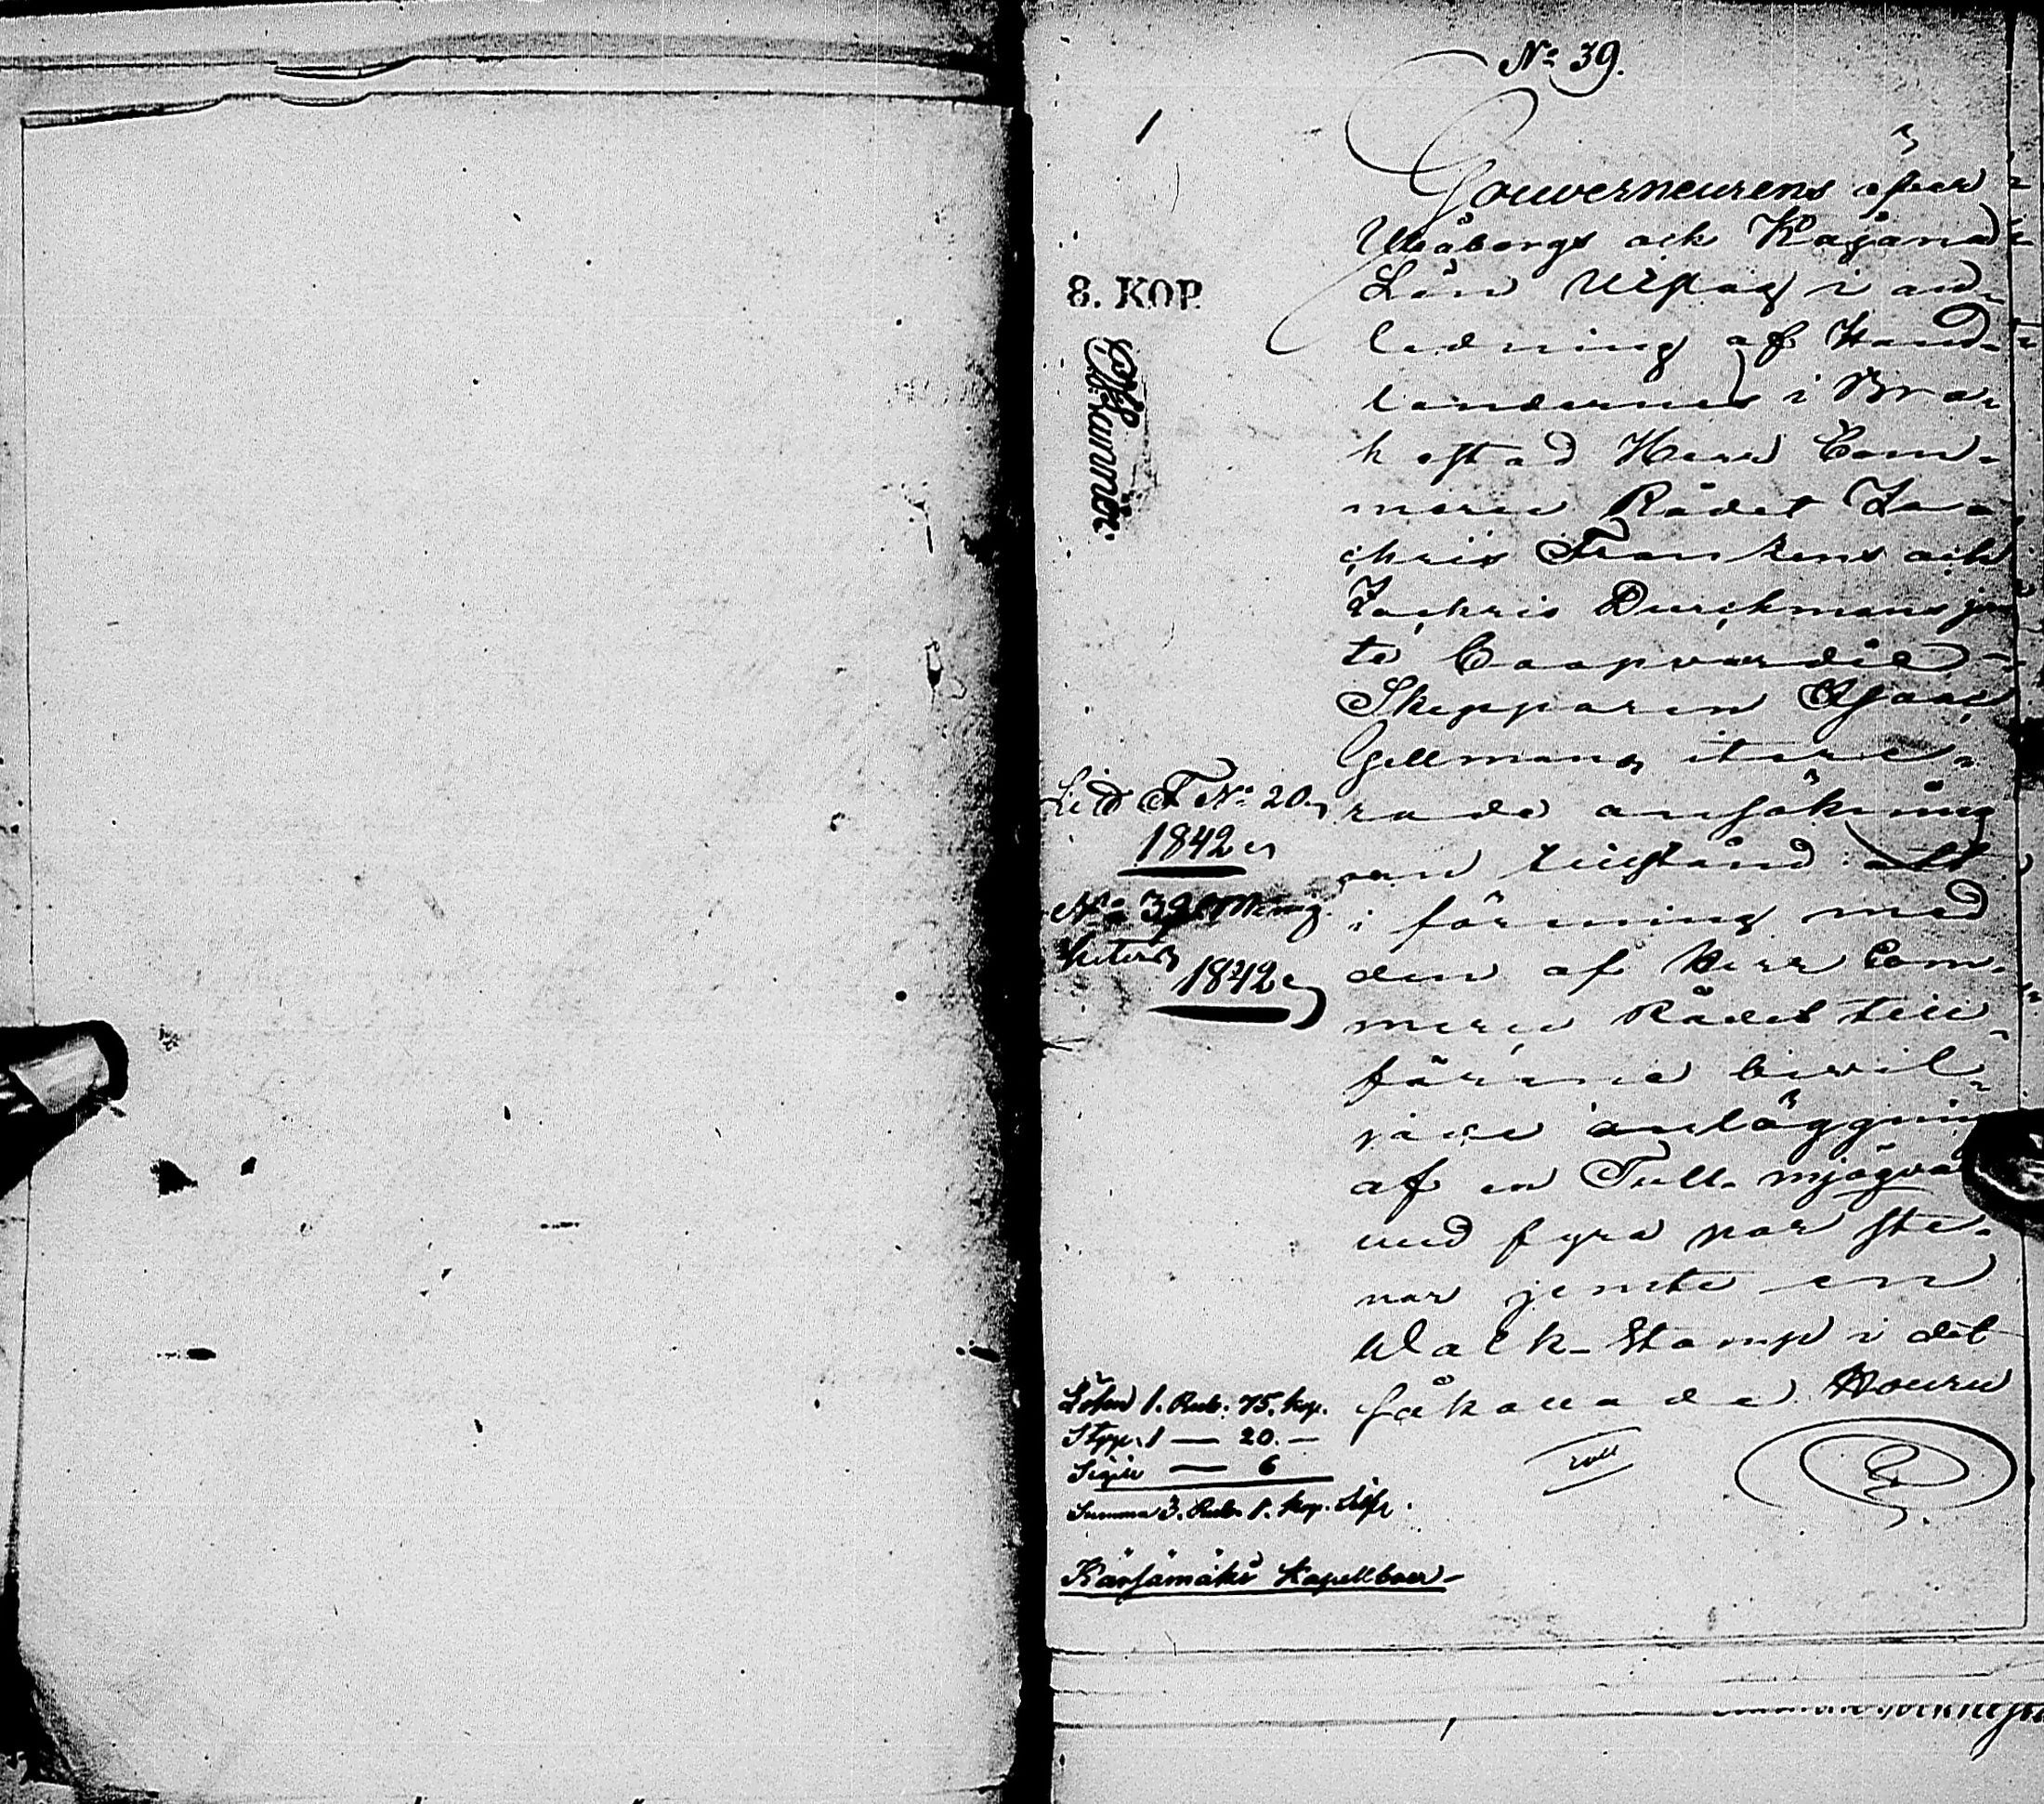 No 39.
1
Gouverneurens öfver
Uleåborgs och Kajana
Län Utslag i an-
ledning af Hand-
landernes i Bra-
hestad Herr Com-
merce Rådet Za-
chris Frankens och
Zachris Durchmans jem
te Coopvaerdie-
Skepparen
Gellmans itere-
rade ansökning
om tillstånd att
i förening med
den af Herr Com-
merce Rådet till-
förene bevil-
jade anläggning
af en Tull-mjögva
med fyra par ste-
nar jemte en
Walk-Stamp i det
så kallade
8. KOP
Litt No 20
1842
No 39
1842
Lösen 1. Rub. 75. kop.
1 — 20. —
Sigill — 6
Summa 3. Rub. 1. kop. Silfr.
Kärsämäki Kapellboer